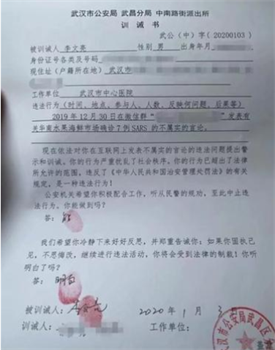 武汉市公安局 武昌分局 中南路街道派出所
训诫书
武公(中)字(20200103)
被训诫人 李文亮 性别 男 出身年月
身份证件名称及号码
现住址(户籍所在地) 武汉市
工作单位 武汉市中心医院
违法行为(时间、地点、参与人、人数、反映何问题、后果等)
2019年12月30日在微信群“ ”发表有
关华南水果海鲜市场确诊7例SARS的不属实的言论。
现在依法对你在互联网上发表不属实的言论的违法问题提出警
示和训诫。你的行为严重扰乱了社会秩序。你的行为已超出了法律
所允许的范围,违反了《中华人民共和国治安管理处罚法》的有关
规定,是一种违法行为!
公安机关希望你积极配合工作,听从民警的规劝,至此中止违
法行为。你能做到吗?
答:能
我们希望你冷静下来好好反思,并郑重告诫你:如果你固执己
见,不思悔改,继续进行违法活动,你将会受到法律的制裁!你听
明白了吗?
答:明白
被训诫人: 2020年1月3
训诫人: 工作单位: